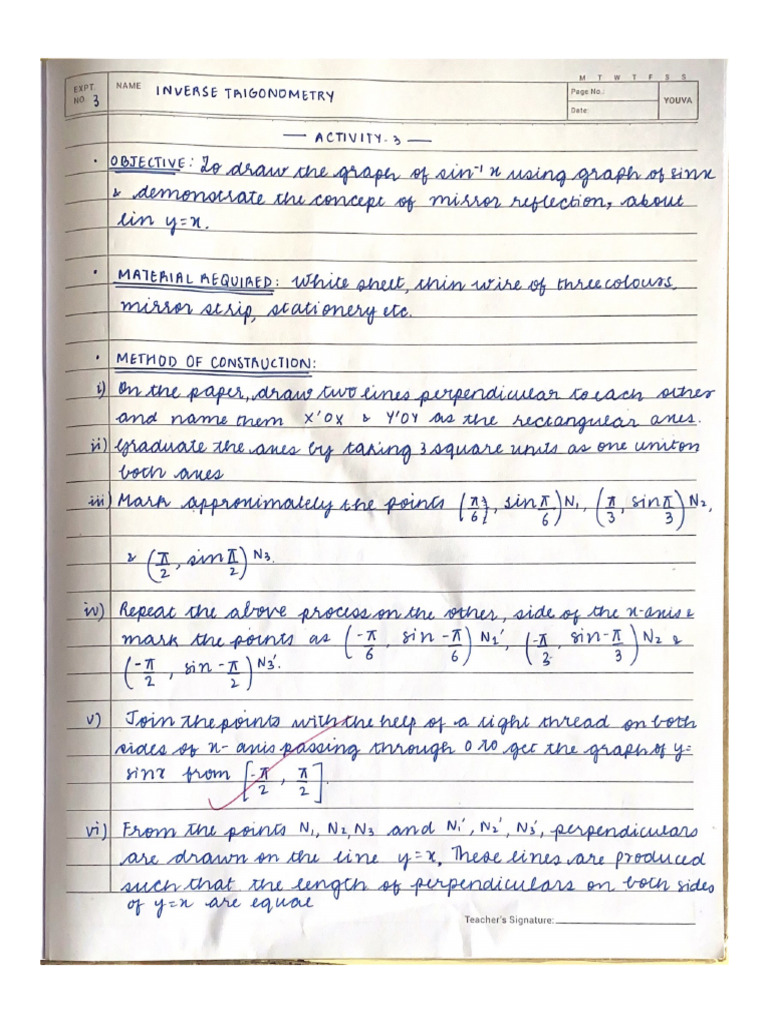 M T W T F S S
EXPT. NO. 3 NAME INVERSE TRIGONOMETRY Page No.: YOUVA
Date:
— ACTIVITY-3 —
• OBJECTIVE: To draw the graph of sin⁻¹ x using graph of sinx
& demonstrate the concept of mirror reflection, about
lin y=x.
• MATERIAL REQUIRED: White sheet, thin wire of three colours,
mirror strip, stationery etc.
• METHOD OF CONSTRUCTION:
i) On the paper, draw two lines perpendicular to each other
and name them X'OX & Y'OY as the rectangular axes.
ii) Graduate the axes by taking 3 square units as one unit on
both axes
iii) Mark approximately the points (π/6, sin π/6) N₁, (π/3, sin π/3) N₂,
& (π/2, sin π/2) N₃.
iv) Repeat the above process on the other, side of the x-axis &
mark the points as (-π/6, sin -π/6) N₁', (-π/3, sin -π/3) N₂ &
(-π/2, sin -π/2) N₃'.
v) Join the points with the help of a tight thread on both
sides of x-axis passing through O to get the graph of y=
sinx from [-π/2, π/2].
vi) From the points N₁, N₂, N₃ and N₁', N₂', N₃', perpendiculars
are drawn on the line y=x, These lines are produced
such that the length of perpendiculars on both sides
of y=x are equal
Teacher's Signature: